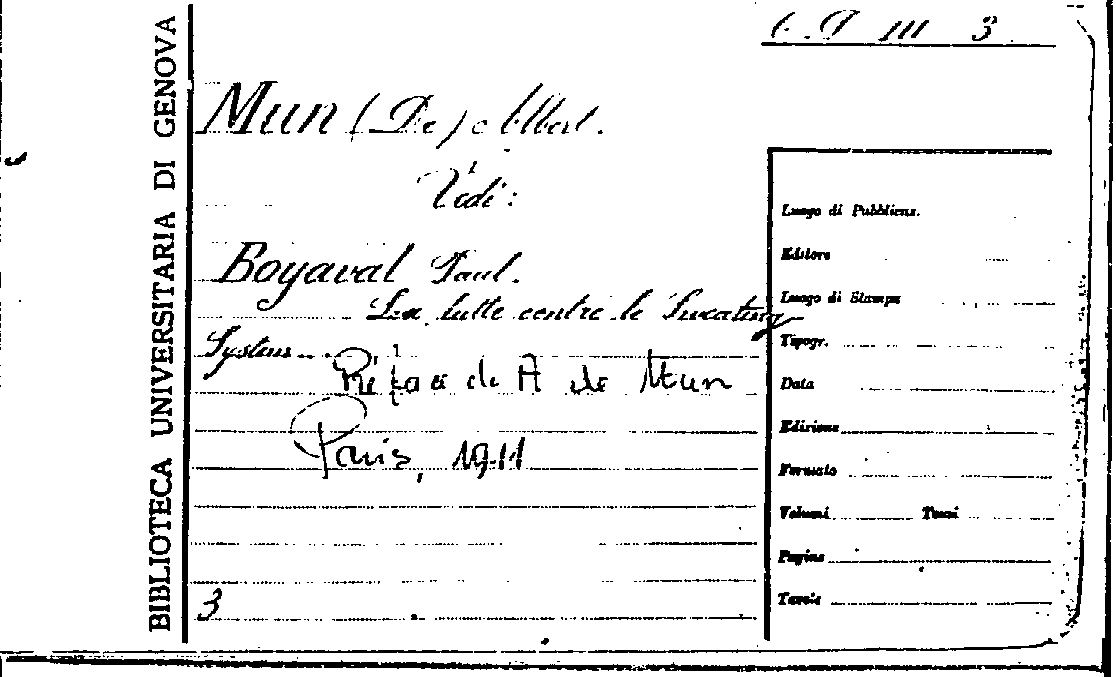 BIBLIOTECA UNIVERSITARIA DI GENOVA
III 3
Mun (De) Albert.
Vedi:
Boyaval Paul.
La lutte contre le Sweating
System...
Préface de A de Mun
Paris, 1911
3
Luogo di Pubblicaz.
Editore
Luogo di Stampa
Tipogr.
Data
Edizione
Formato
Volumi Tomi
Pagine
Tavole